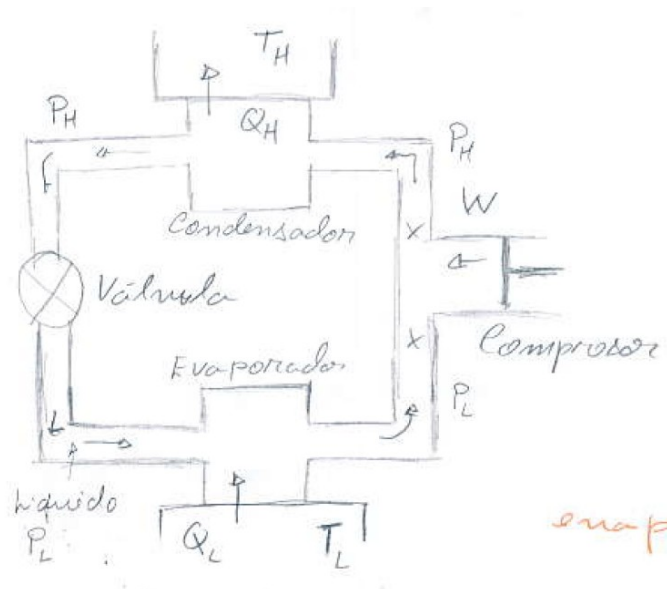 T_H
P_H
Q_H
P_H
W
Condensador
Válvula
Comprosor
Evaporador
P_L
Líquido
P_L
Q_L
T_L
evap